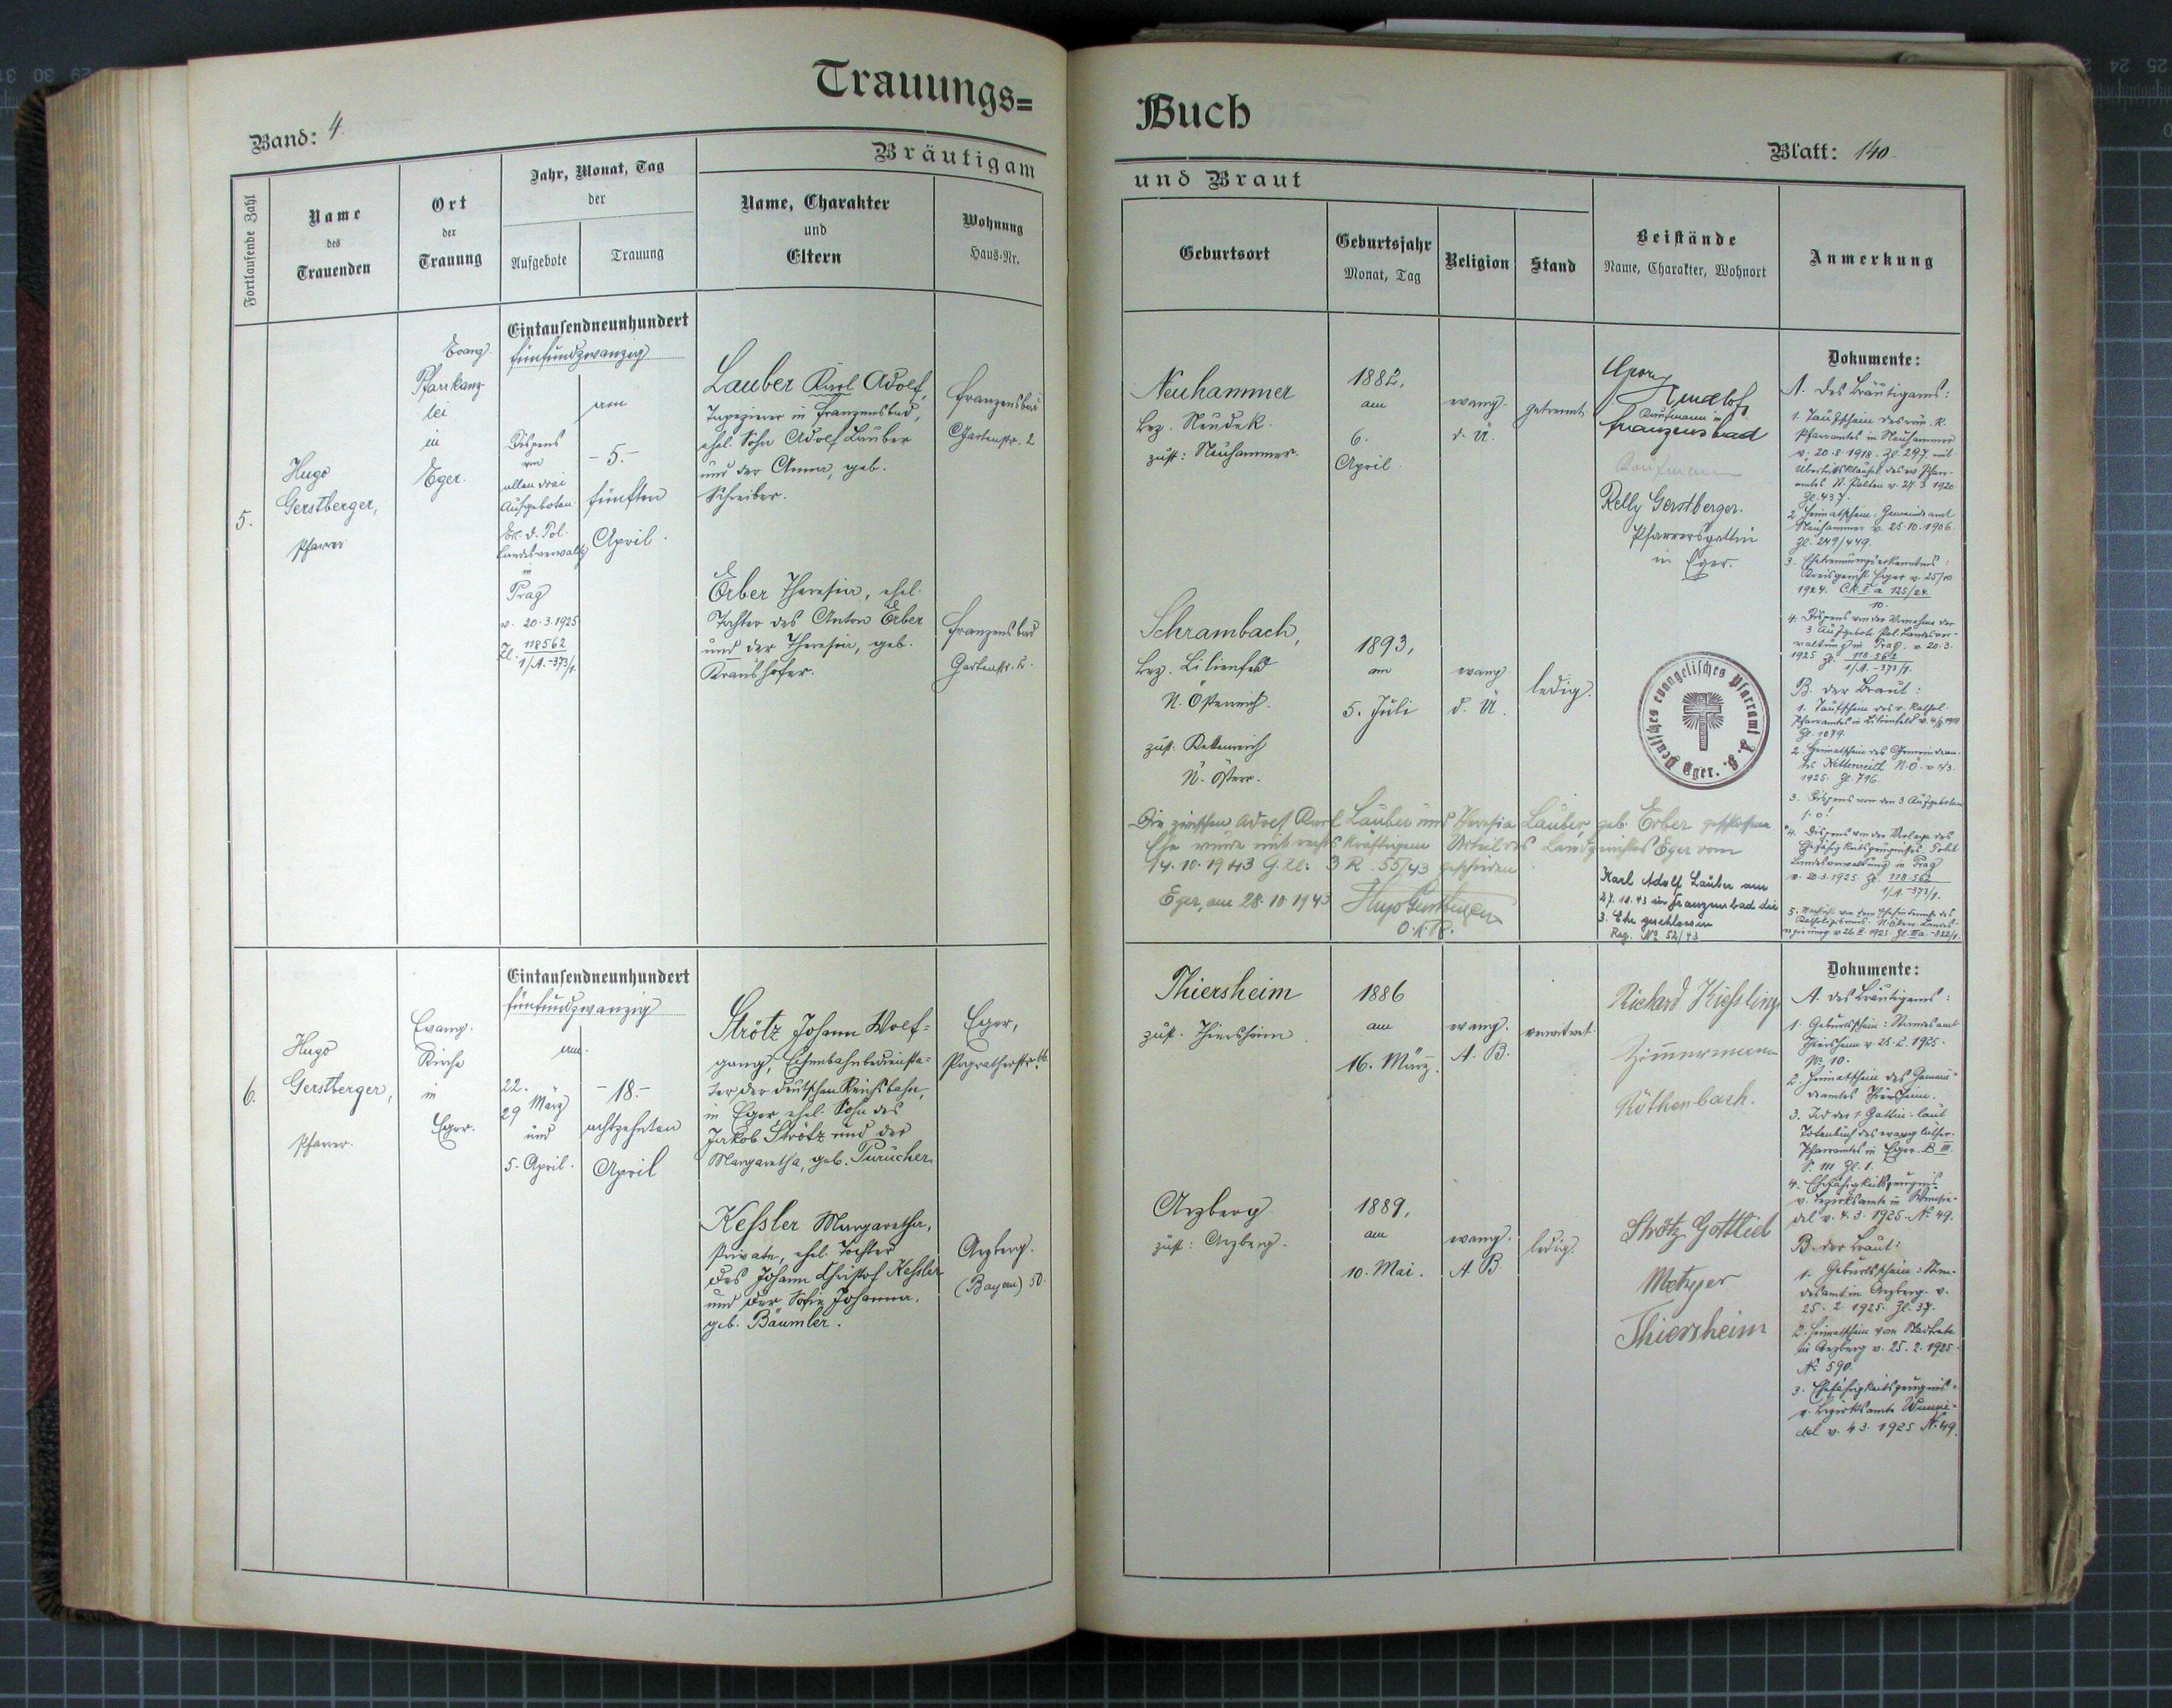 Trauungs=
Band: 4.
Fortlaufende Zahl
Name
des
Trauenden
Ort
der
Trauung
Jahr, Monat, Tag
der
Aufgebote
Trauung
Bräutigam
Name, Charakter
und
Eltern
Wohnung
Haus-Nr.
5.
Hugo
Gerstberger,
Pfarrer
Evang.
Pfarrkanz-
lei
in
Eger.
Eintausendneunhundert
fünfundzwanzig
Dispens
von
allen drei
Aufgeboten
d. Pol.
Landesverwaltg
in
Prag
v. 20.3.1925
Zl. 118562
1/A.-373/1.
am
-5.-
fünften
April.
Lauber Karl Adolf,
Tapezierer in Franzensbad,
ehel. Sohn Adolf Lauber
und der Anna, geb.
Schreiber.
Franzensbad
Gartenstr. 2
Erber Theresia, ehel.
Tochter des Anton Erber
und der Theresia, geb.
Kraushofer.
Franzensbad
Gartenstr. 2.
6.
Hugo
Gerstberger,
Pfarrer.
Evang.
Kirche
in
Eger.
Eintausendneunhundert
fünfundzwanzig
am
22.
29 März
und
5. April.
-18.-
achtzehnten
April
Strötz Johann Wolf-
gang, Eisenbahnbedienste-
ter der deutschen Reichsbahn,
in Eger ehel. Sohn des
Jakob Strötz und der
Margaretha, geb. Purucher.
Eger,
Pogratherstr.
Kessler Margaretha,
Private, ehel. Tochter
des Johann Christof Kessler
und der Sofie Johanna,
geb. Bäumler.
Arzberg.
(Bayern) 50.
Buch
Blatt: 140.
und Braut
Geburtsort
Geburtsjahr
Monat, Tag
Religion
Stand
Beistände
Name, Charakter, Wohnort
Anmerkung
Neuhammer
Bez. Neudek.
zust: Neuhammer.
1882,
am
6.
April.
evang.
d. Ü.
getrennt.
Kaufmann in
Franzensbad
Kaufmann
Relly Gerstberger.
Pfarrersgattin
in Eger.
Schrambach,
Bez. Lilienfeld
N. Österreich.
zust.
N. Österr.
1893,
am
5. Juli
evang.
d. Ü.
ledig.
Deutsches evangelisches Pfarramt A. B. Eger.
Die zwischen Adolf Karl Lauber und Theresia Lauber, geb. Erber geschlossene
Ehe wurde mit rechtskräftigem Urteil des Landgerichtes Eger vom
14.10.1943 G.Zl: 3 R. 55/43 geschieden.
Eger, am 28.10.1943 Hugo Gerstberger
Karl Adolf Lauber am
27.11.43 in Franzensbad die
3. Ehe geschlossen
Reg. No 52/43
Dokumente:
A. des Bräutigams:
1. Taufschein des röm. k.
Pfarramtes in Neuhammer
v. 20.8.1918. Zl. 297 mit
Übertrittsklausel des ev. Pfarr-
amtes St. Pölten v. 27.3.1920
Zl. 437.
2. Heimatschein Gemeindeamt
Neuhammer v. 25.10.1906
Zl. 249/449.
3. Ehetrennungserkenntnis:
Kreisgericht Eger v. 25/10
1924. Ck I a 125/24.
10.
4. Dispens von der Vornahme der
3 Aufgebote Pol. Landesver-
waltung in Prag v. 20.3.
1925 Zl. 118.562
1/A.-373/1.
B. der Braut:
1. Taufschein des r. kathol.
Pfarramtes in Lilienfeld
Zl. 1079.
2. Heimatschein des Gemeindeam-
tes N.Ö.
1925. Zl. 796.
3. Dispens von den 3 Aufgeboten
4. Dispens von der Vorlage des
Ehefähigkeitszeugnisses. Polit.
Landesverwaltung in Prag
v. 20.3.1925 Zl. 118.562
1/A.-373/1.
Thiersheim
zust. Thiersheim
1886
am
16. März.
evang.
A. B.
verwitwet.
Richard Kiessling
Zimmermann
Röthenbach.
Arzberg
zust: Arzberg.
1889,
am
10. Mai.
evang.
A. B.
ledig.
Strötz Gottlieb
Metzger
Thiersheim
Dokumente:
A. des Bräutigams:
1. Geburtsschein: Standesamt
Thiersheim v. 25.2.1925.
No 10.
2. Heimatschein des Gemein-
deamtes Thiersheim.
3. Tod der 1. Gattin laut
Totenbuch des evang. luther.
Pfarramtes in Eger. B III.
S. 111 Zl. 1.
4. Ehefähigkeitszeugnis
v. Bezirksamte in Wunsie-
del v. 4.3.1925. No 49.
B. der Braut:
1. Geburtsschein: Stan-
desamt in Arzberg. v.
25.2.1925. Zl. 37.
2. Heimatschein vom Stadtrate
in Arzberg v. 25.2.1925.
No 590.
3. Ehefähigkeitszeugnis.
v. Bezirksamte Wunsie-
del v. 4.3.1925 No 49.